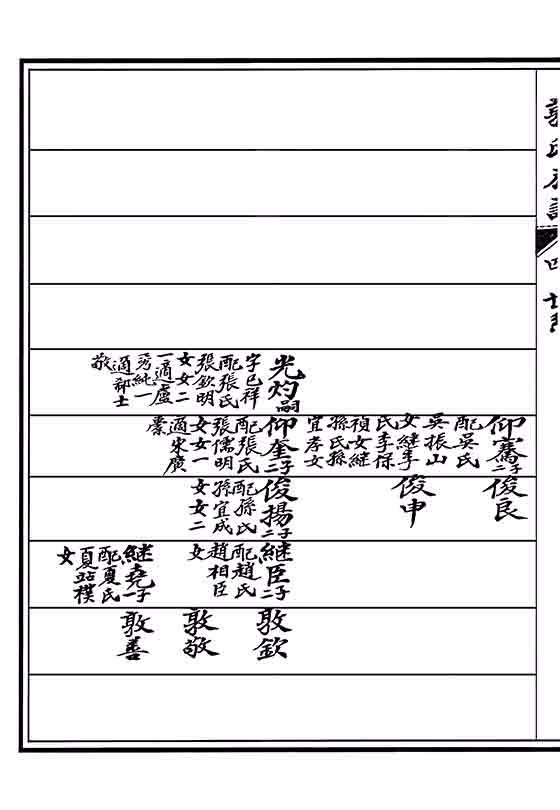 郭氏族譜
四
仰騫二子
配吳氏
吳振山
女繼李
氏李保
禎女繼
孫氏孫
宜孝女
俊良
俊申
光灼嗣
字已祥
配張氏
張欽明
女女二
一適盧
秀純一
適郝士
敬
仰奎二子
配張氏
張儒明
女女一
適宋廣
俊揚二子
配孫氏
孫宜成
女女二
繼臣二子
配趙氏
趙相臣
女
敦欽
敦敬
繼堯一子
配夏氏
夏站樸
女
敦善